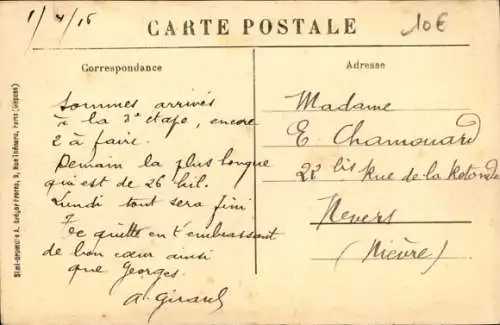 1/4/16
CARTE POSTALE
10€
Correspondance
Adresse
Sommes arrivés
à la 3e etape, encore
2 à faire.
Demain la plus longue
qui est de 26 kil.
Lundi tout sera fini
Je quitte en t'embrassant
de bon cœur ainsi
que Georges.
A. Girard
Madame
E Chamouard
22 bis Rue de la Rotonde
Nevers
(Nièvre)